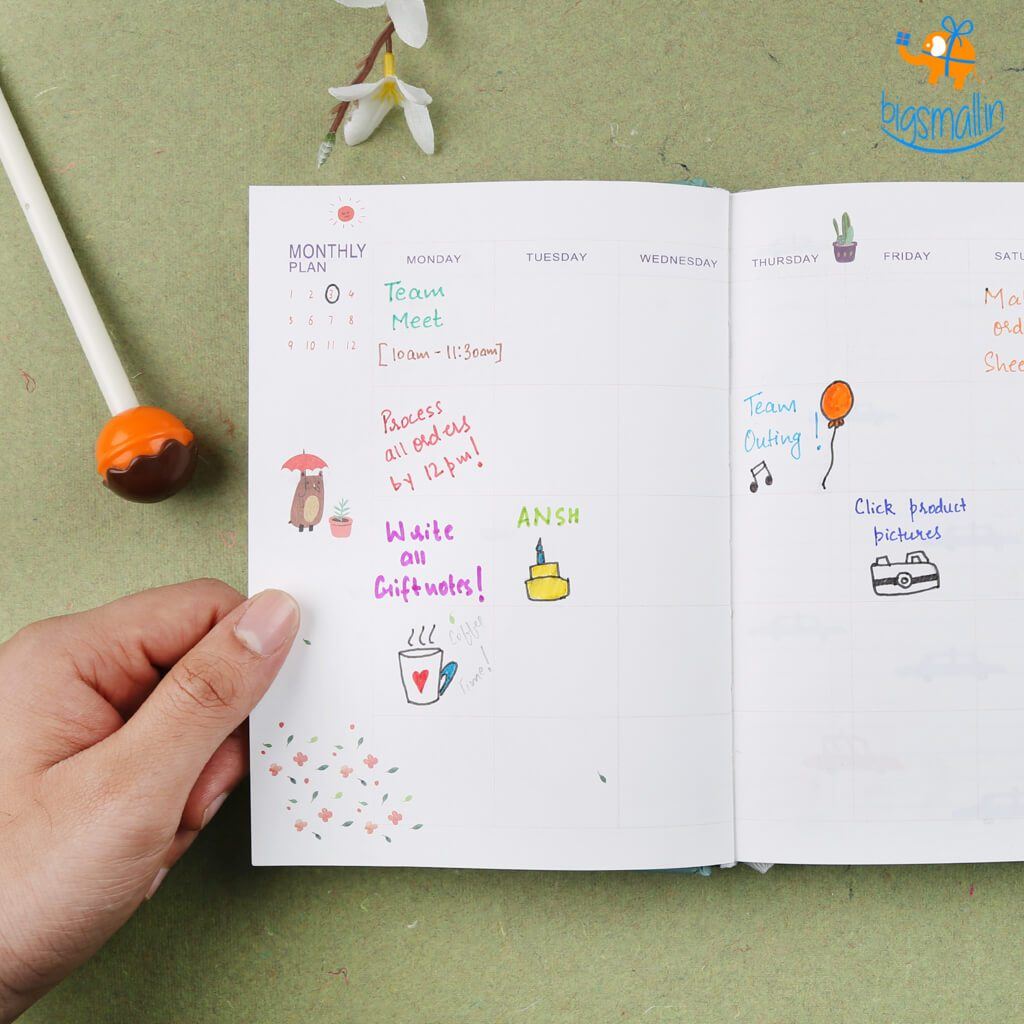 bigsmall.in
MONTHLY
PLAN
MONDAY
TUESDAY
WEDNESDAY
THURSDAY
FRIDAY
SATU
1 2 3 4
5 6 7 8
9 10 11 12
Team
Meet
[10am - 11:30am]
Ma
ord
Shee
Process
all orders
by 12pm!
Team
Outing!
Write
all
Giftnotes!
ANSH
Click product
pictures
Coffee
Time!